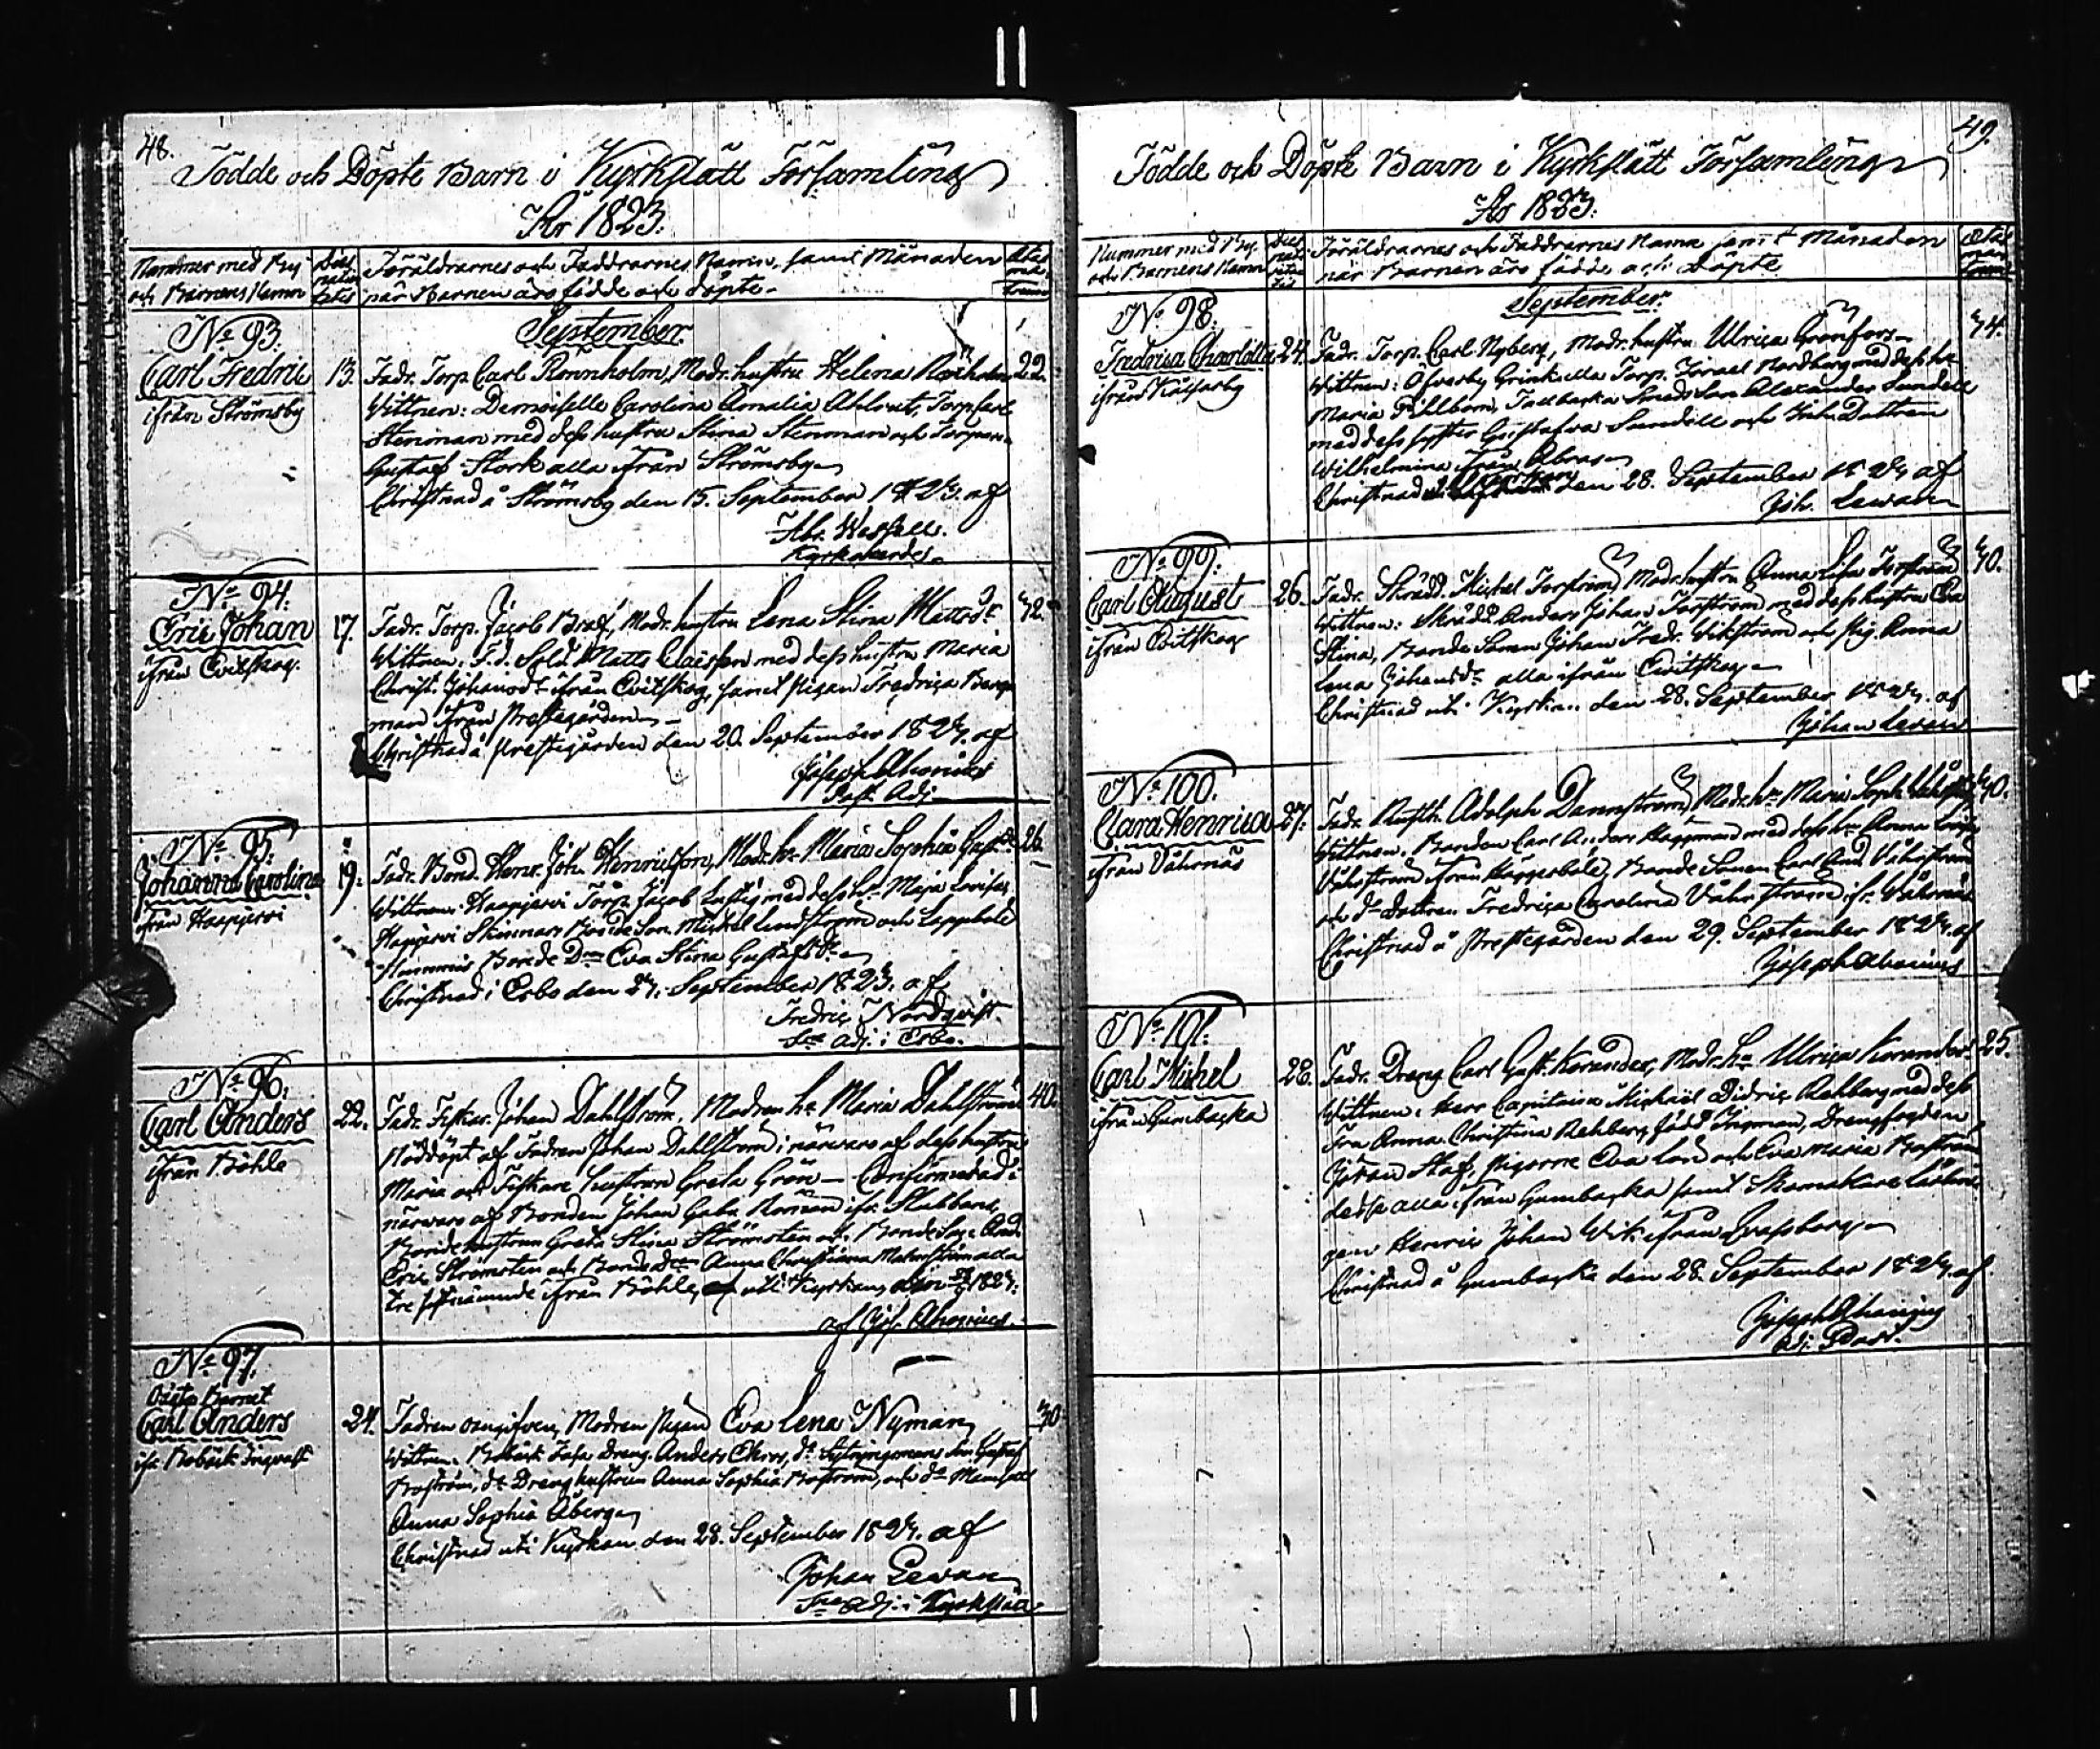 48.
Födde och Döpte Barn i Kyrkslätt Församling
År 1823.
Nummer med By och Barnens Namn
Dies nativitatis
Föräldrarnes och Faddrarnes Namn, samt Månaden
när Barnen äro födde och döpte.
Ætas matrum
September.
No 93.
Carl Fredric
ifrån Strömsby
13.
Fadr. Torp. Carl Rönnholm, Modr. hustru Helena Rönholm
22.
Wittnen: Demoiselle Carolina Amalia Ahlrut, Torp. Carl
Stenman med dess hustru Stina Stenman och Torparen
Gustaf Stork alla ifrån Strömsby
Christnad å Strömsby den 15. September 1823. af
Abr. Wessell.
Kyrkoherde.
No 94.
Eric Johan
ifrån Evitskog.
17.
Fadr. Torp. Jacob Bräf, Modr. hustru Lena Stina Mattsdr
32.
Wittnen: F.d. Sold. Matts Claesson med dess hustru Maria
Christ. Johansdr ifrån Evitskog, samt pigan Fredrica Berg-
man ifrån Prestegården
Christnad å Prestegården den 20. September 1823. af
Joseph Ahonius
Past. Adj.
No 95.
Johanna Carolina
ifrån Haapjervi
19.
Fadr. Bond. Henr. Joh. Henricsson, Modr. hu Maria Sophia
26.
Wittnen: Haapjervi Torp. Jacob Lustig med dess hu Maja Lovisa,
Haapjervi Skinnars Bonde Son Michel Lindström och Lappböle
Bonde Dr Eva Stina Gustafsdr
Christnad i Esbo den 21. September 1823. af
Fredric Nordqvist.
Adj. i Esbo.
No 96.
Carl Anders
ifrån Böhle
22.
Fadr. Fiskar. Johan Dahlström. Modren hu Maria Dahlström
40.
Nöddöpt af Fadren Johan Dahlström i närvaro af dess hustru
Maria och Fiskare hustrun Greta Grön — Confirmerad i
närvaro af Bonden Johan Gabr. Roman ifr. Slabbara,
Bonde hustrun Greta Stina Strömsten och Bonde Son And.
Eric Strömsten och Bondedr Anna Christiana Malmström alla
tre sistnämnde ifrån Böhle, uti Kyrkan, den 1823.
af Jos. Ahonius.
No 97.
Oägta Barnet
Carl Anders
ifr. Bobäck Ingvals
24.
Fadren oangifven, Modren Pigan Eva Lena Nyman
30.
Wittnen: Bobäck Drang. Anders Ekroos, Son Gustaf
Boström, do Dräng hustrun Anna Sophia Boström, och do Mamsell
Anna Sophia Åberg
Christnad uti Kyrkan den 28. September 1823. af
Johan Levan
Adj. i Kyrkslätt
49.
Födde och Döpte Barn i Kyrkslätt Församling
År 1823.
Nummer med By och Barnens Namn
Dies nativitatis
Föräldrarnes och Faddrarnes Namn samt Månaden
när Barnen äro födde och Döpte
Ætas matrum
September.
No 98.
Fredrica Charlotta
24.
Fadr. Torp. Carl Nyberg, Modr. hustru Ulrica Grönfors
34.
Wittnen: Öfverby Torp. Israel Nordberg med dess hu
Maria Fihlbom, Tallbacka Smeds Son Alexander Sundell
med dess syster Gustafva Sundell och Dottren
Wilhelmina ifrån
Christnad den 28. September 1823 af
Joh. Levan
No 99.
Carl August
ifrån Evitskog
26.
Fadr. Skrädd. Michel Forsström, Modr. hustru Anna Lisa Forsström
30.
Wittnen: Skrädd. Anders Johan Forsström med dess hustru Eva
Stina, Bonde Sonen Johan Fredr. Wikström och pig. Anna
Lena Johansdr alla ifrån Evitskog
Christnad uti Kyrkan den 28. September 1823. af
Johan Levan
No 100.
Clara Henrica
ifrån Vährnäs
27.
Fadr. Rusth. Adolph Dannström, Modr. hu Maria Soph.
40.
Wittnen: Bonden Carl Anders Haggman med dess hu Anna Lovisa
Vährström ifrån Häggesböle, Bonde Sonen Carl And. Vährström
och do Dottren Fredrica Carolina Vährström ifr. Vährnäs
Christnad å Prestegården den 29. September 1823. af
Joseph Ahonius
No 101.
Carl Michel
ifrån Gumbacka
28.
Fadr. Dräng Carl Gust. Korander, Modr. hu Ulrica Korander
25.
Wittnen: Herr Capitaine Michaël Didric Rehberg med dess
Fru Anna Christina Rehberg född Ingman, Drengfogden
Göran Staf, Pigorne Eva Lovisa och Eva Maria Boström
desse alla ifrån Gumbacka samt Skomakare Lärlin-
gen Henric Johan Wik ifrån
Christnad å Gumbacka den 28. September 1823. af
Joseph Ahonius
Adj. Past.